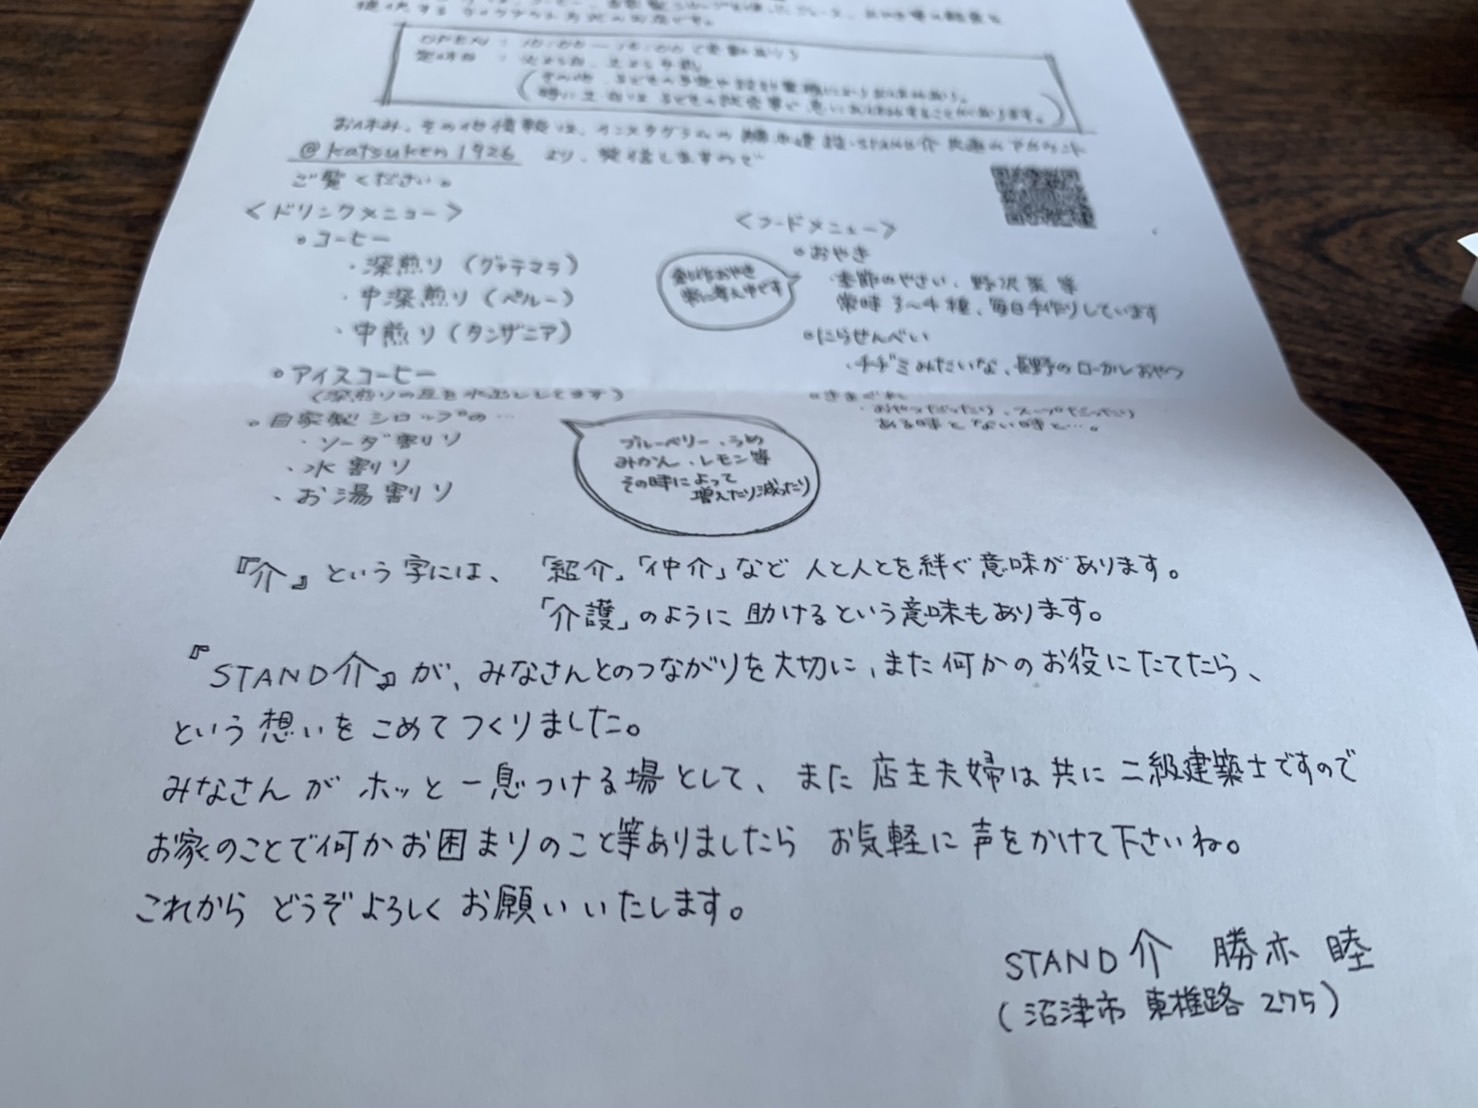 提供するテイクアウト方式のお店です。
OPEN : 10:00〜16:00 (変動あり)
定休日 :
お休み、その他情報は、インスタグラムの勝亦建設・STAND介共通のアカウント
@katsuken1926 より、発信しますので
ご覧ください。
<ドリンクメニュー>
・コーヒー
・深煎り (グァテマラ)
・中深煎り (ペルー)
・中煎り (タンザニア)
・アイスコーヒー
(深煎りの豆を水出ししてます)
・自家製シロップの…
・ソーダ割り
・水割り
・お湯割り
ブルーベリー、うめ
みかん、レモン等
その時によって
増えたり減ったり
<フードメニュー>
・おやき
・季節のやさい、野沢菜 等
常時 3〜4種、毎日手作りしています
創作おやき
常に考え中です
・にらせんべい
・チヂミみたいな、長野のローカルおやつ
・きまぐれ
・おやつだったり、スープだったり
ある時とない時と…。
『介』という字には、「紹介」「仲介」など人と人とを絆ぐ意味があります。
「介護」のように助けるという意味もあります。
『STAND介』が、みなさんとのつながりを大切に、また何かのお役にたてたら、
という想いをこめてつくりました。
みなさんがホッと一息つける場として、また店主夫婦は共に二級建築士ですので
お家のことで何かお困まりのこと等ありましたらお気軽に声をかけて下さいね。
これからどうぞよろしくお願いいたします。
STAND介 勝亦 睦
(沼津市 東椎路 275)